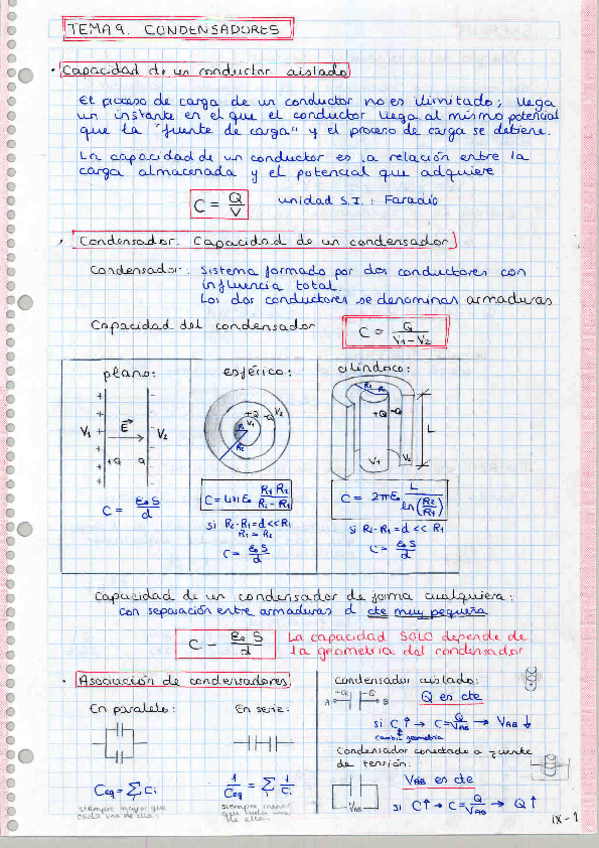 TEMA 9. CONDENSADORES
· Capacidad de un conductor aislado
El proceso de carga de un conductor no es ilimitado; llega
un instante en el que el conductor llega al mismo potencial
que la "fuente de carga" y el proceso de carga se detiene.
La capacidad de un conductor es la relación entre la
carga almacenada y el potencial que adquiere
C = Q/V unidad S.I.: Faradio
· Condensador. Capacidad de un condensador
Condensador: Sistema formado por dos conductores con
influencia total.
Los dos conductores se denominan armaduras
Capacidad del condensador C = Q/(V1 - V2)
plano: esférico: cilíndrico:
V1 E V2 +Q
R1 R2 +Q -Q V1 V2
R1 R2 +Q -Q L V1 V2
C = ε0 S/d
C = 4πε0 R1 R2/(R2 - R1)
si R2-R1=d<<R1
R1 ≈ R2
C = ε0 S/d
C = 2πε0 L/ln(R2/R1)
si R2-R1=d << R1
C = ε0 S/d
Capacidad de un condensador de forma cualquiera:
con separación entre armaduras d cte muy pequeña
C = ε0 S/d La capacidad SOLO depende de
la geometría del condensador
· Asociación de condensadores.
En paralelo: En serie:
Ceq = Σi Ci
siempre mayor que
cada una de ellas.
1/Ceq = Σi 1/Ci
siempre menor
que cada una
de ellas.
condensador aislado:
A +Q -Q B Q es cte
si C↑ → C = Q/VAB → VAB ↓
cambia geometría
Condensador conectado a fuente
de tensión:
VAB VAB es cte
si C↑ → C = Q/VAB → Q↑
IX-1